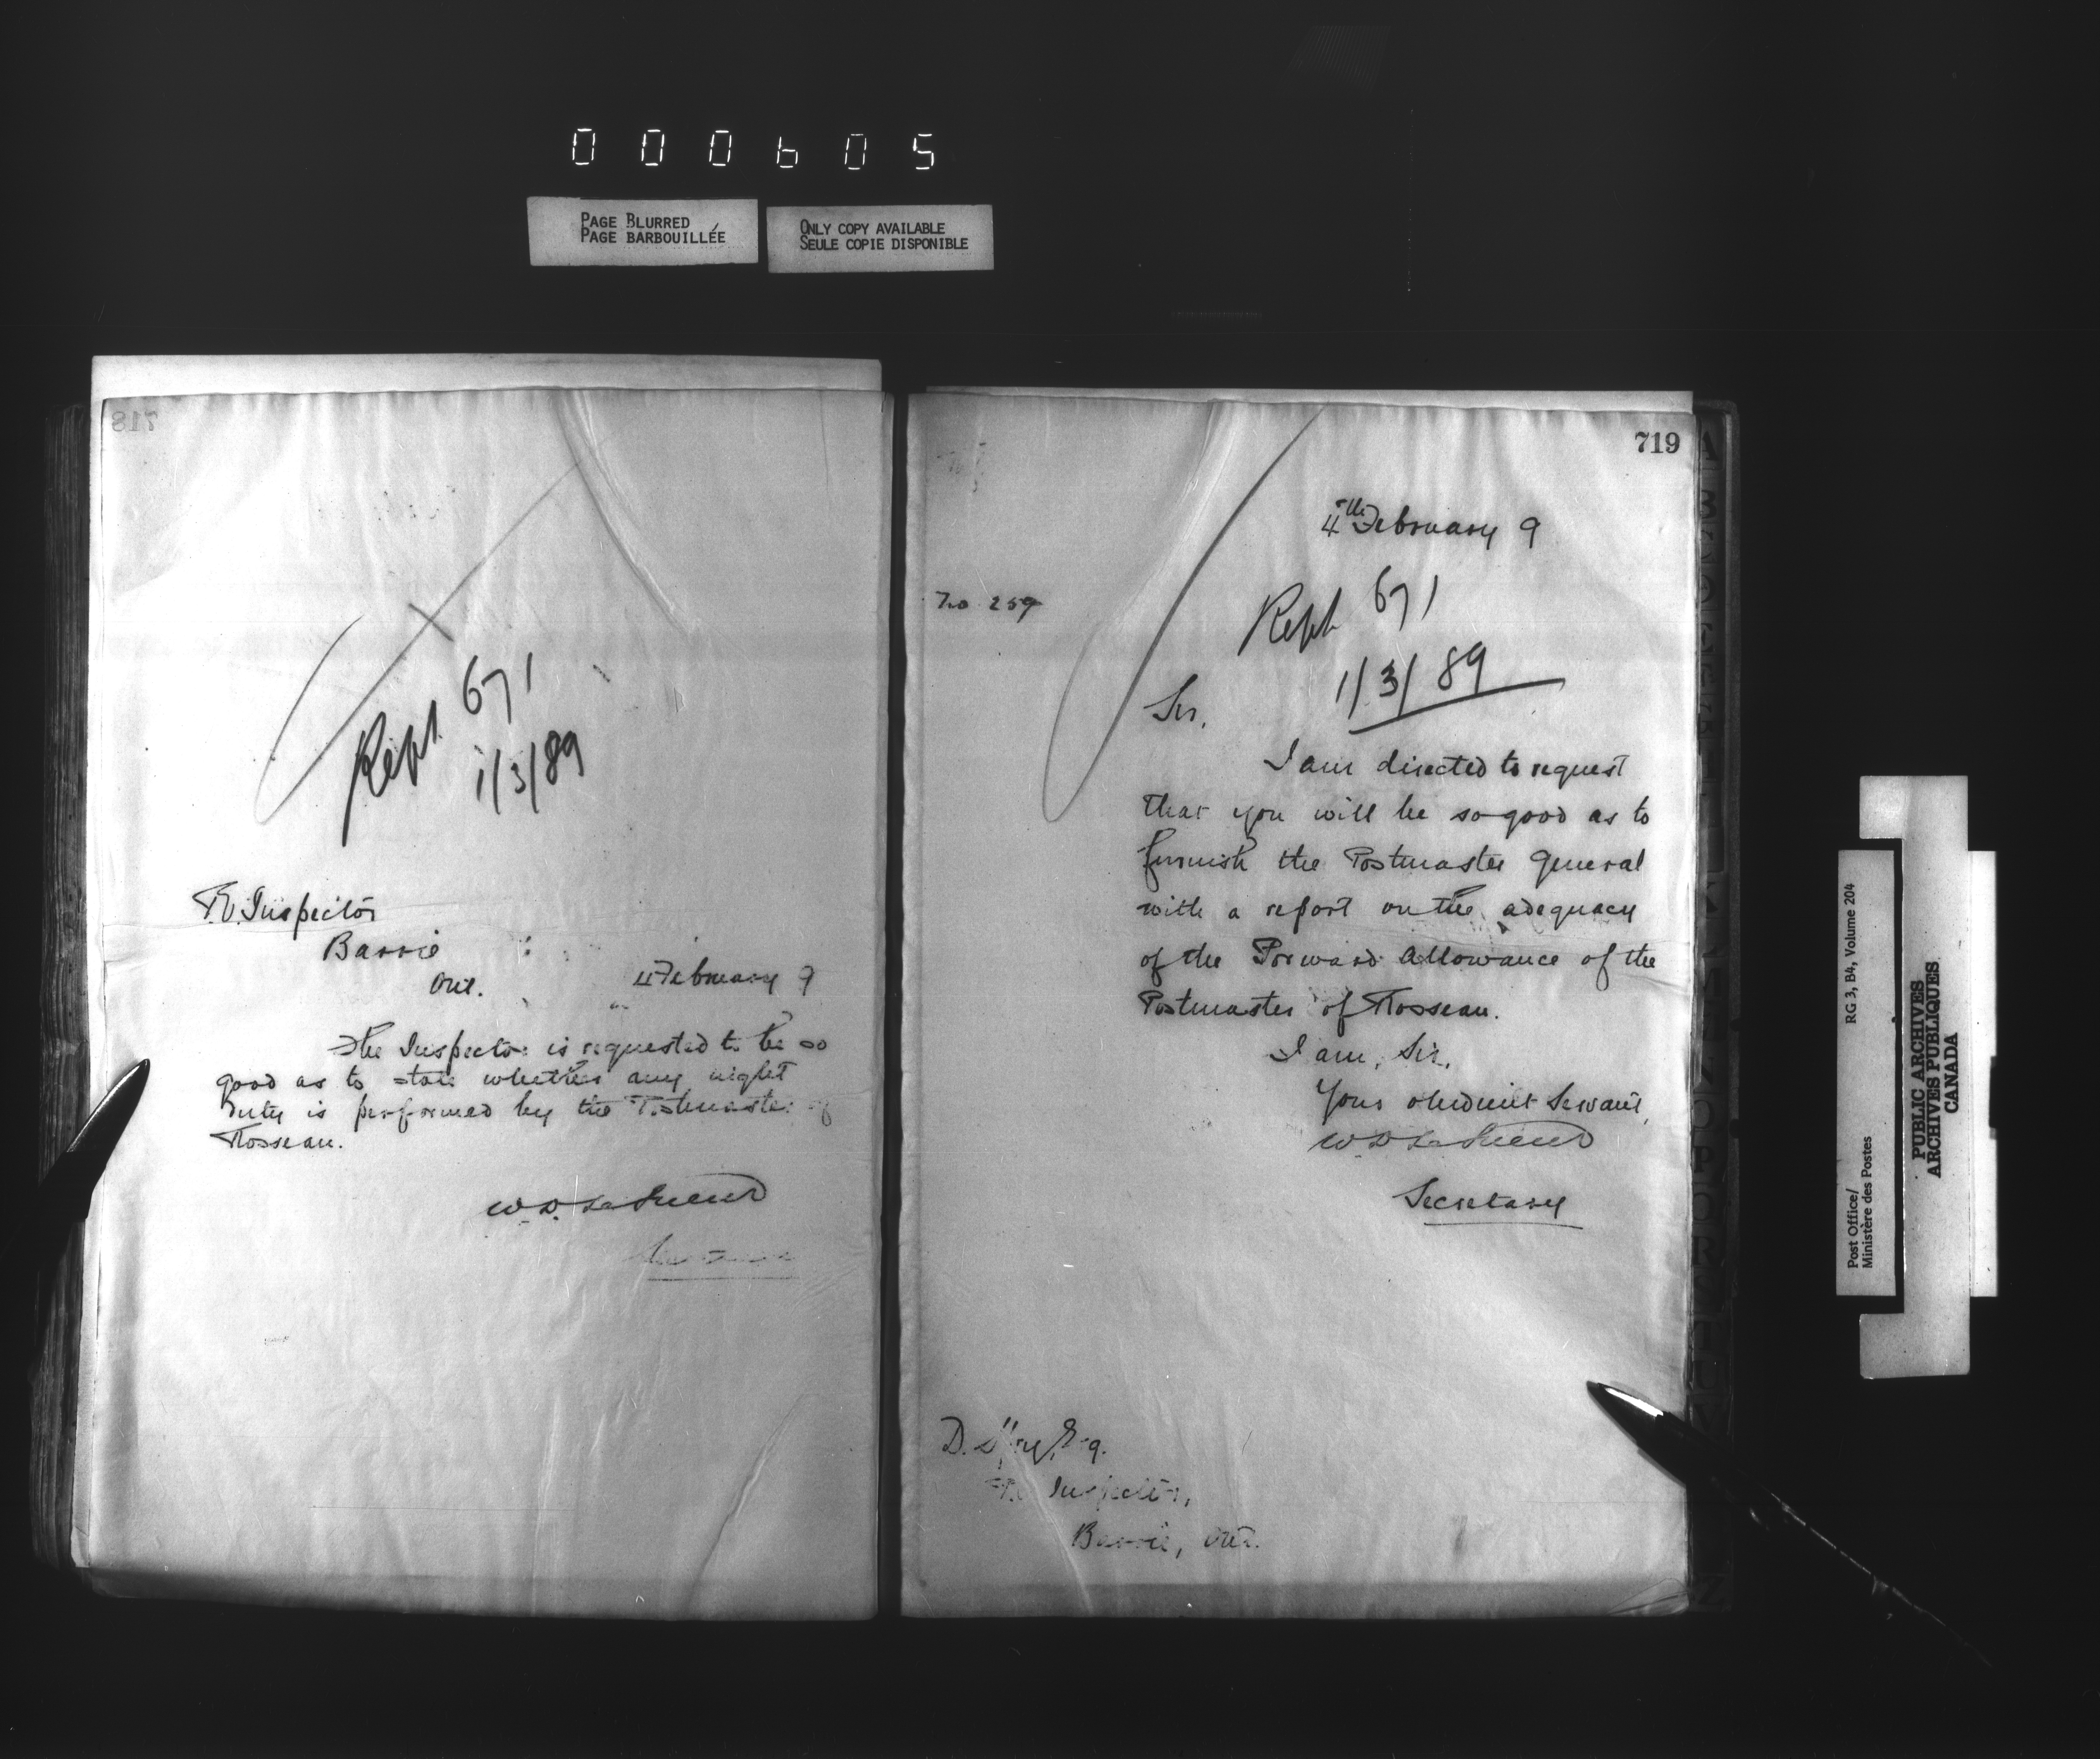 000605
PAGE BLURRED
PAGE BARBOUILLÉE
ONLY COPY AVAILABLE
SEULE COPIE DISPONIBLE
718
Rept 671
1/3/89
P.O. Inspector
Barrie
Ont.
4 February 9
The Inspector is requested to be so
good as to state whether any night
duty is performed by the Postmaster of
Rosseau.
W. D. LeSueur
719
4th February 9
No 259
Rept 671
1/3/89
Sir,
I am directed to request
that you will be so good as to
furnish the Postmaster General
with a report on the adequacy
of the Forward Allowance of the
Postmaster of Rosseau.
I am, Sir,
Your obedient Servant,
W D LeSueur
Secretary
D. Esq.
P.O. Inspector,
Barrie, Ont.
Post Office/
Ministère des Postes
RG 3, B4, Volume 204
PUBLIC ARCHIVES
ARCHIVES PUBLIQUES
CANADA